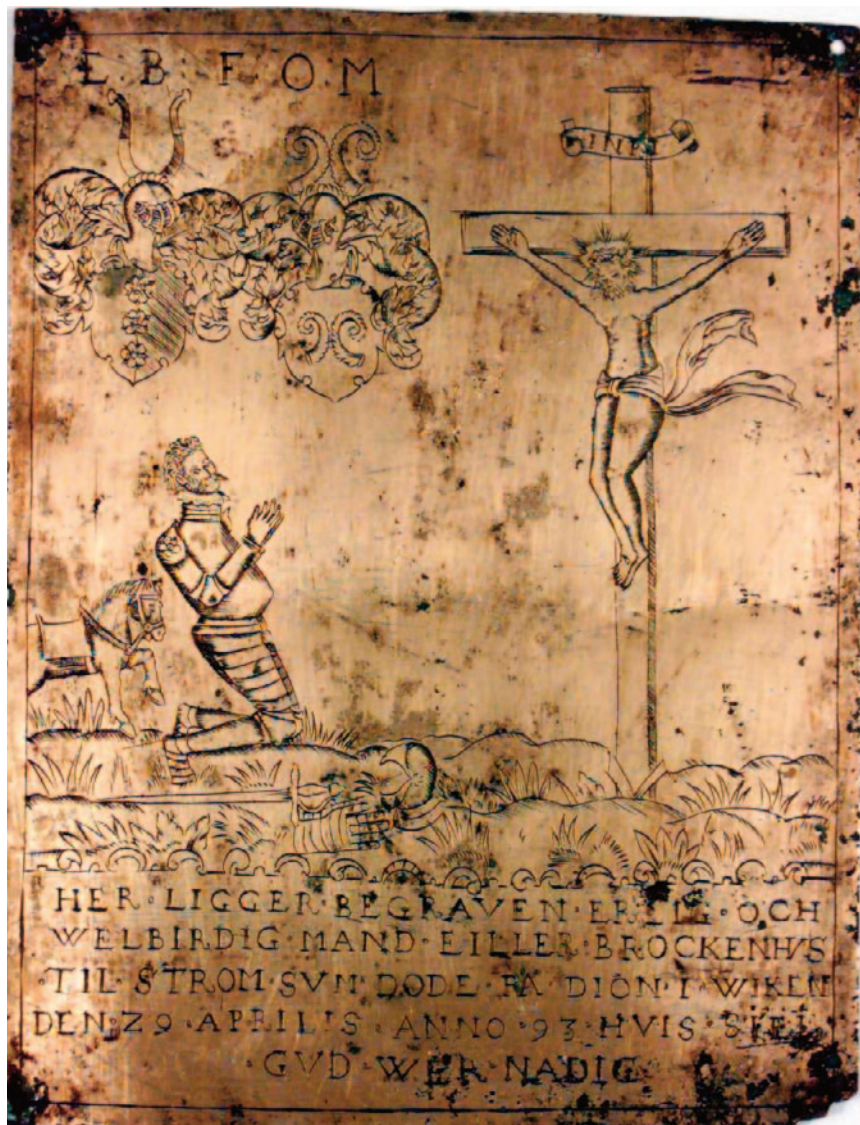 E B F O M
INRI
HER · LIGGER · BEGRAVEN · ERLIG · OCH
WELBIRDIG · MAND · EILLER · BROCKENHVS
· TIL · STROM · SVN · DODE · PA · DION · I · WIKEN
DEN · 29 · APRILIS · ANNO · 93 · HVIS · SIEL
· GVD · WER · NADIG